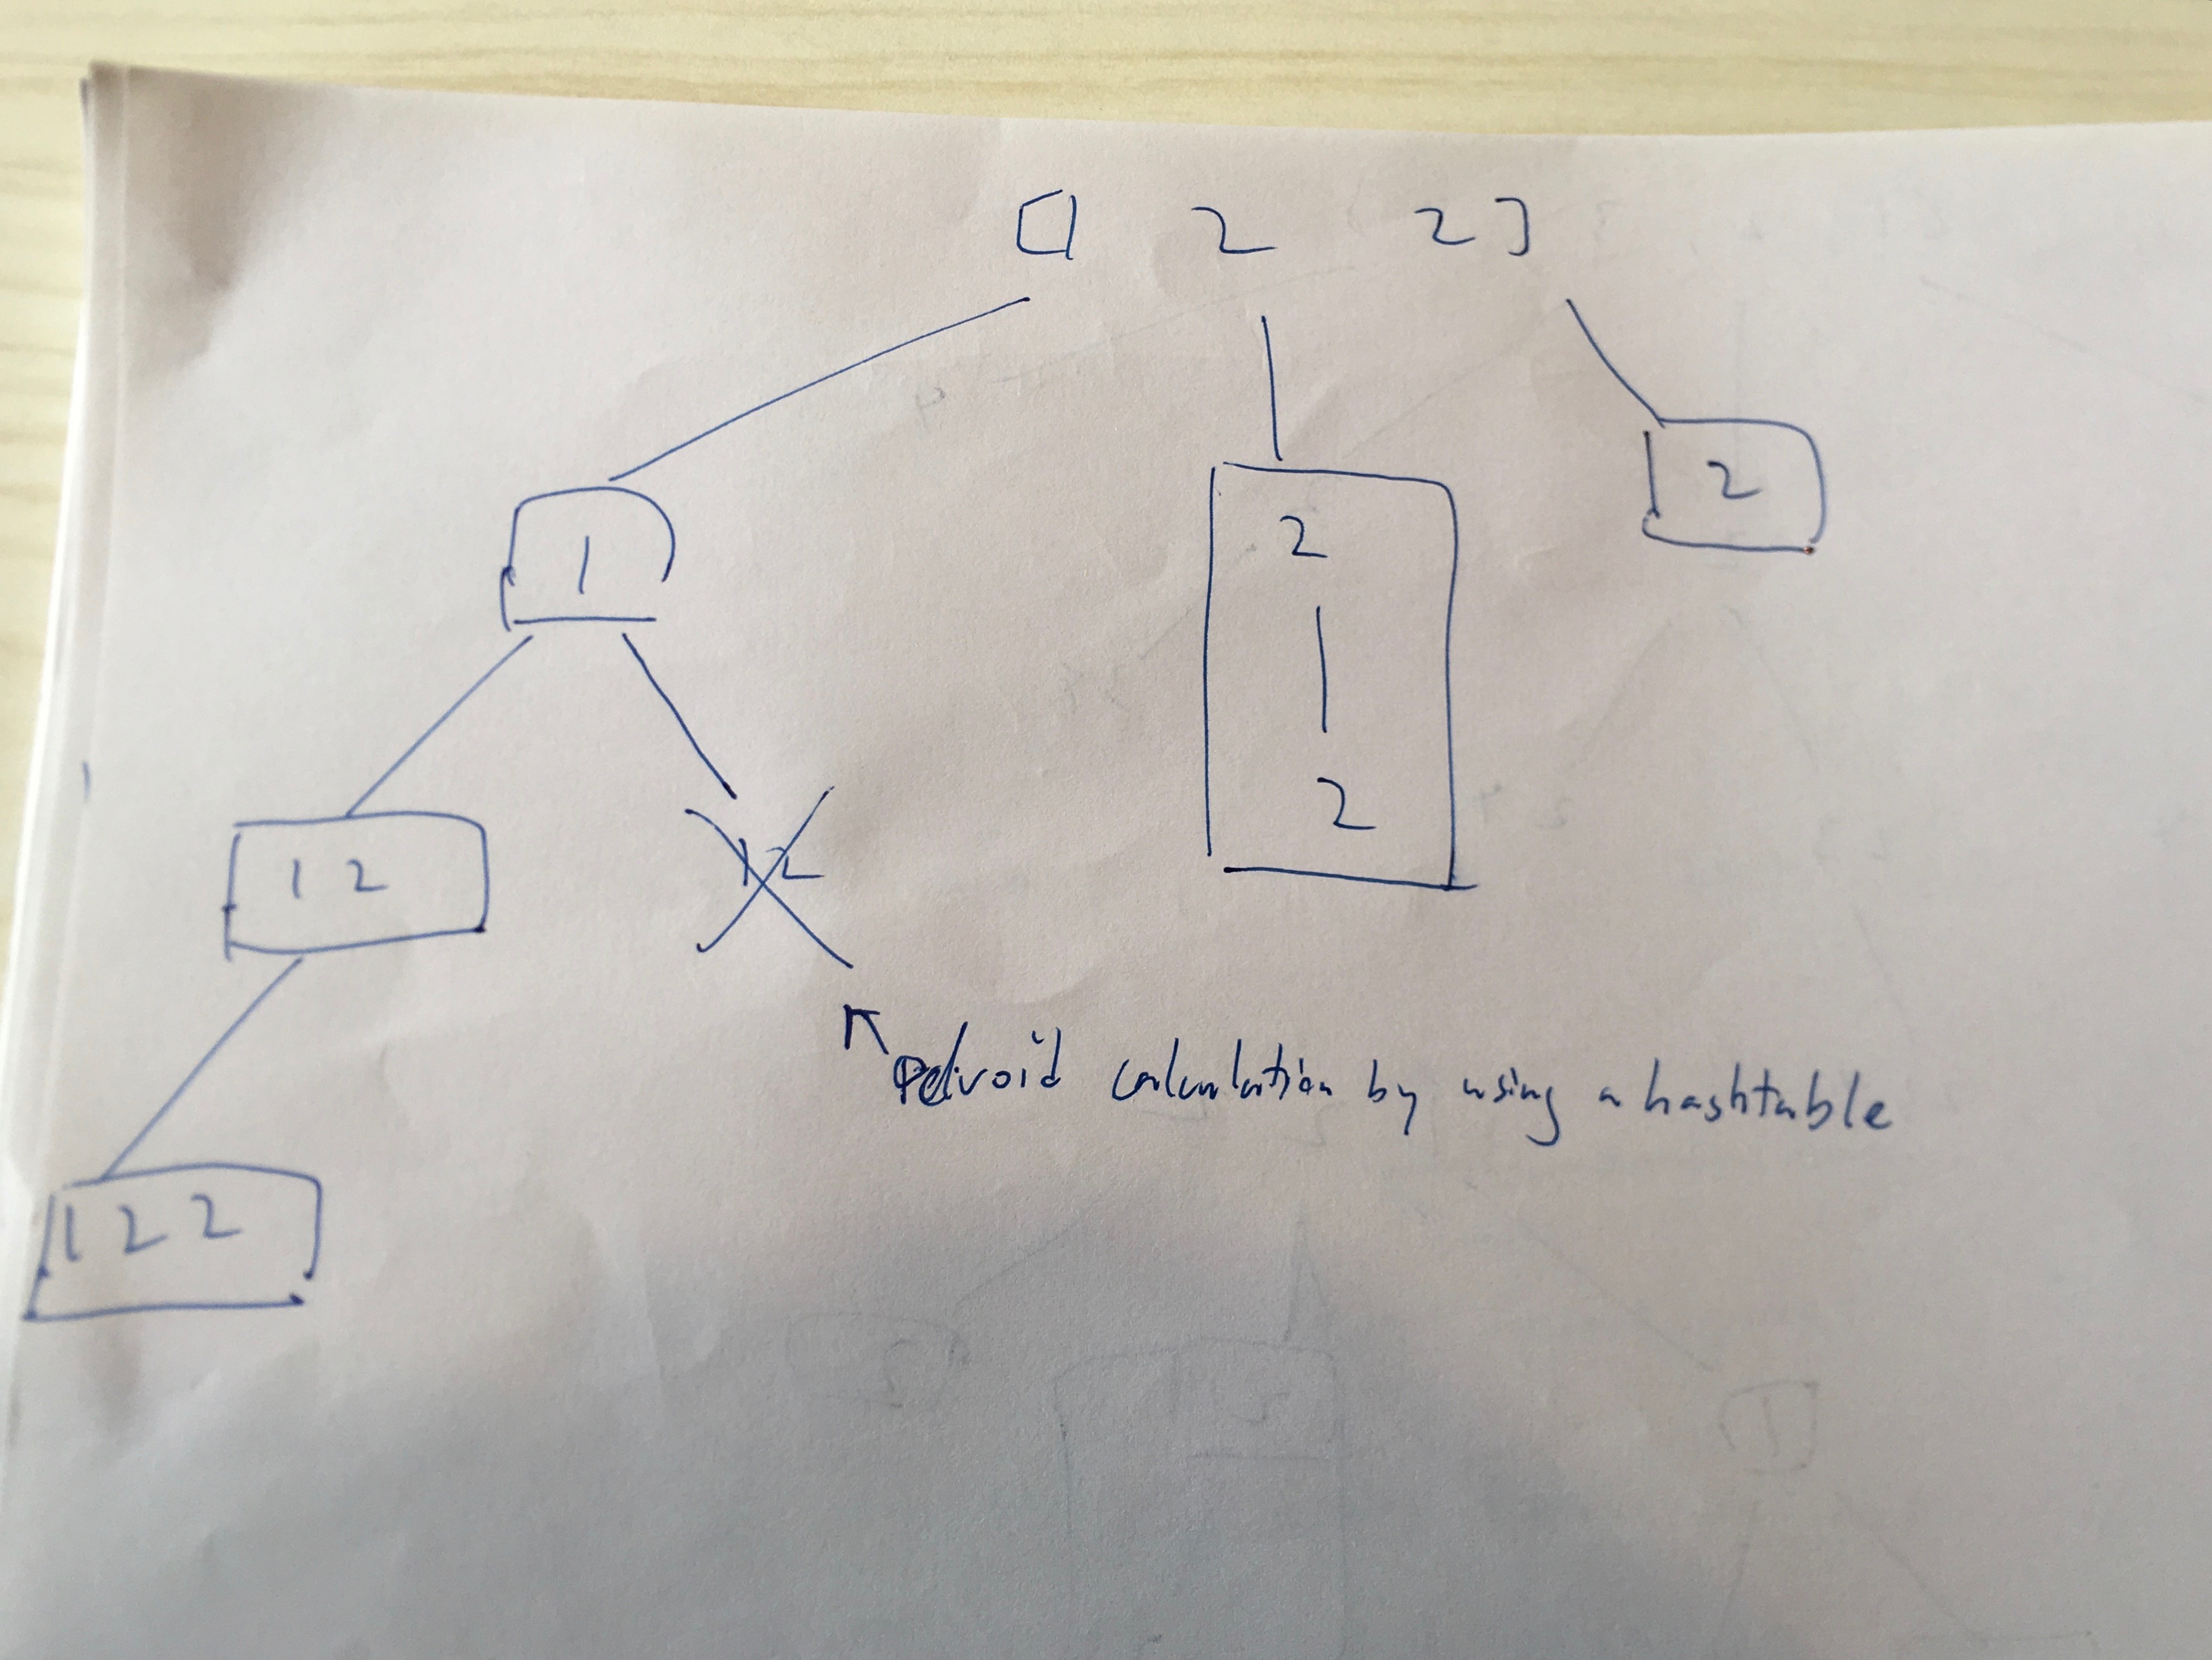 [1 2 2]
1
2
2
2
1 2
1 2
2
avoid calculation by using a hashtable
1 2 2